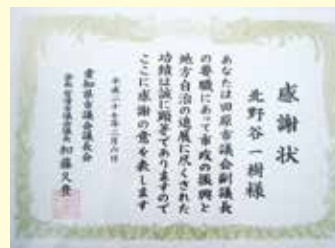 感謝状
北野谷一樹様
あなたは田原市議会副議長
の要職にあって市政の振興と
地方自治の進展に尽くされた
功績は誠に顕著でありますので
ここに感謝の意を表します
平成二十七年二月六日
愛知県市議会議長会
会長 議長 加藤久豊